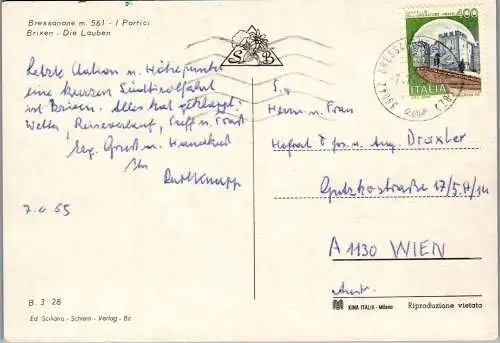 Bressanone m. 561 - I Portici
Brixen - Die Lauben
Letzte Station u. Höhepunkt
eine kurzen Südtirolfahrt
ist Brixen. Alles hat geklappt:
Wetter, Reiseverlauf,
Gruß u. Handkuß
Ihr
7. 6. 85
S B
400
ITALIA
39042 BRESSANONE
Herrn u. Frau
Hofrat Draxler
Gutzkostraße 17/5.A/14
A 1130 WIEN
Austr.
B. 3 28
Ed. Sciliano - Schlern - Verlag - Bz
KINA ITALIA - Milano
Riproduzione vietata